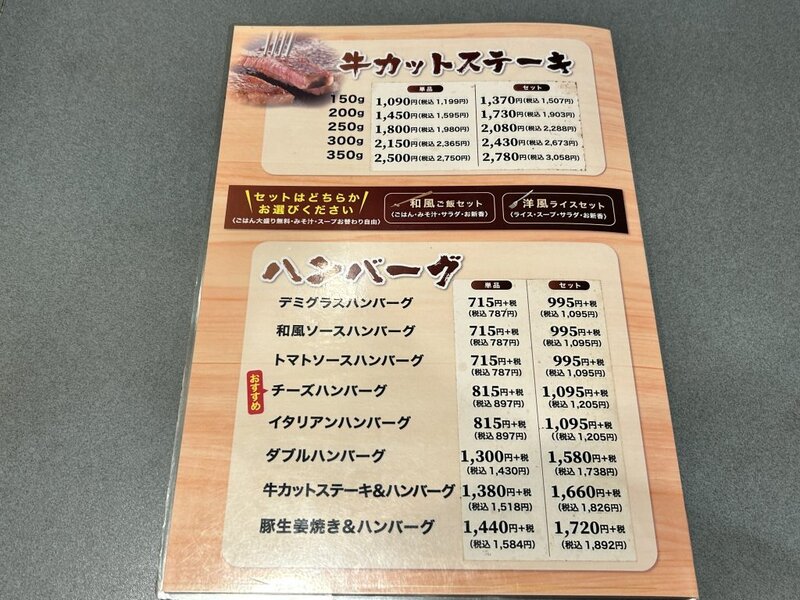 牛カットステーキ
単品 セット
150g 1,090円(税込 1,199円) 1,370円(税込 1,507円)
200g 1,450円(税込 1,595円) 1,730円(税込 1,903円)
250g 1,800円(税込 1,980円) 2,080円(税込 2,288円)
300g 2,150円(税込 2,365円) 2,430円(税込 2,673円)
350g 2,500円(税込 2,750円) 2,780円(税込 3,058円)
セットはどちらか
お選びください
(ごはん大盛り無料・みそ汁・スープお替わり自由)
和風ご飯セット
(ごはん・みそ汁・サラダ・お新香)
洋風ライスセット
(ライス・スープ・サラダ・お新香)
ハンバーグ
単品 セット
デミグラスハンバーグ 715円+税 995円+税
(税込 787円) (税込 1,095円)
和風ソースハンバーグ 715円+税 995円+税
(税込 787円) (税込 1,095円)
トマトソースハンバーグ 715円+税 995円+税
(税込 787円) (税込 1,095円)
おすすめ
チーズハンバーグ 815円+税 1,095円+税
(税込 897円) (税込 1,205円)
イタリアンハンバーグ 815円+税 1,095円+税
(税込 897円) ((税込 1,205円)
ダブルハンバーグ 1,300円+税 1,580円+税
(税込 1,430円) (税込 1,738円)
牛カットステーキ&ハンバーグ 1,380円+税 1,660円+税
(税込 1,518円) (税込 1,826円)
豚生姜焼き&ハンバーグ 1,440円+税 1,720円+税
(税込 1,584円) (税込 1,892円)